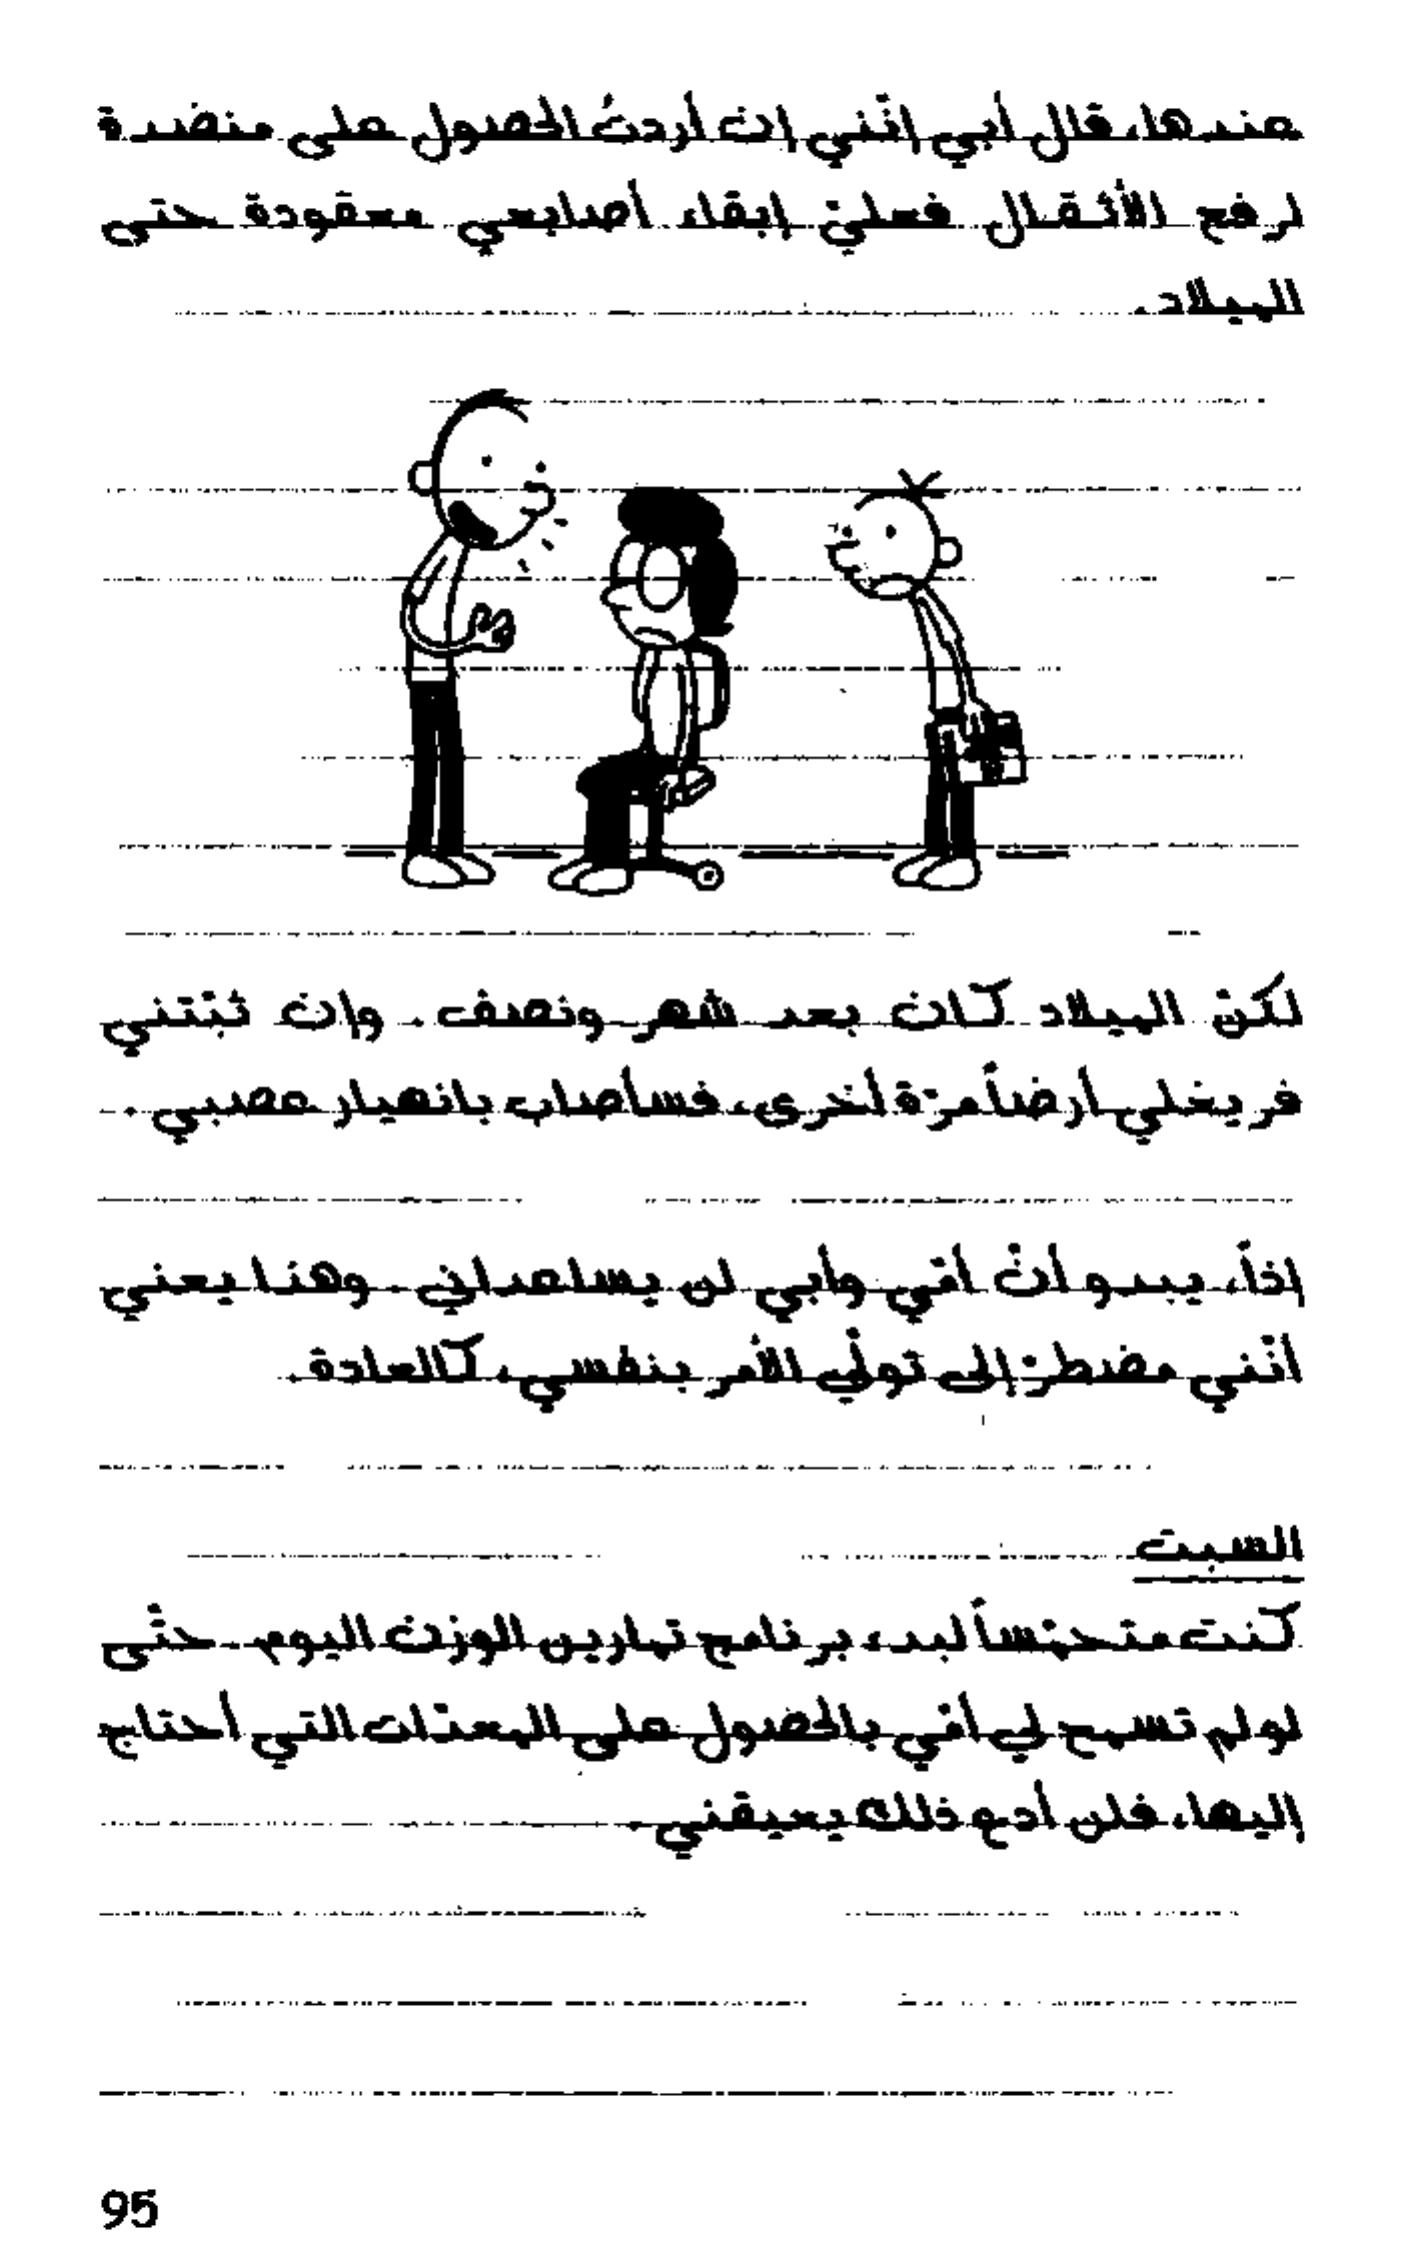 عندها، قال أبي إنّني إن أردتُ الحصول على منضدة
لرفع الأثقال فعليّ إبقاء أصابعي معقودة حتى
الميلاد.
لكنّ الميلاد كان بعد شهر ونصف. وإن ثبّتني
فريغلي أرضاً مرّة أخرى، فسأصاب بانهيار عصبي.
إذاً، يبدو أنّ أمّي وأبي لن يساعداني. وهذا يعني
أنّني مضطرّ إلى تولّي الأمر بنفسي، كالعادة.
السبت
كنت متحمّساً لبدء برنامج تمارين الوزن اليوم. حتّى
لو لم تسمح لي أمّي بالحصول على المعدّات التي أحتاج
إليها، فلن أدع ذلك يعيقني.
95